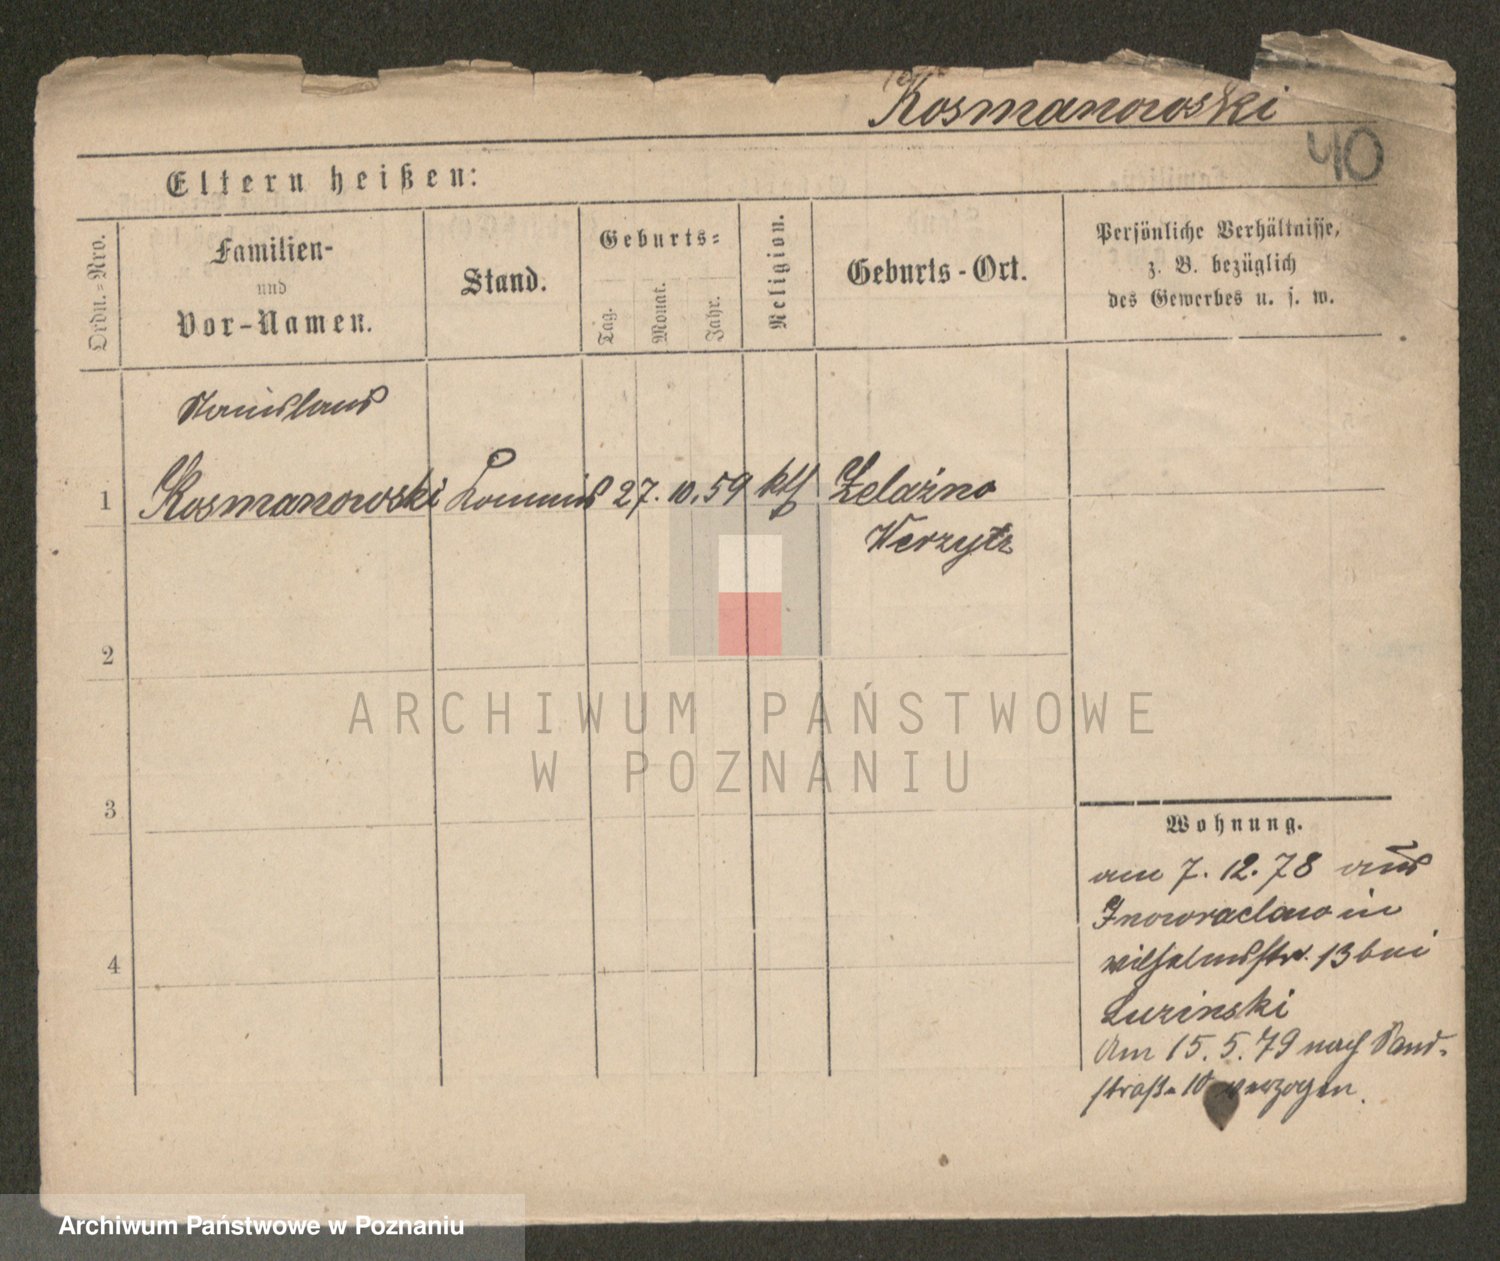 Kosmanowski
40
Eltern heißen:
Ordn.-Nro.
Familien-
und
Vor-Namen.
Stand.
Geburts-
Tag.
Monat.
Jahr.
Religion.
Geburts-Ort.
Persönliche Verhältnisse,
z. B. bezüglich
des Gewerbes u. s. w.
Stanislaus
1 Kosmanowski Commis 27. 10. 59 kth Zelaźno
2
3
4
Wohnung.
am 7. 12. 78 aus
Inowraclaw in
Wilhelmsstr. 13 bei
Luzinski
Am 15. 5. 79 nach Sand-
straße 10 verzogen.
ARCHIWUM PAŃSTWOWE
W POZNANIU
Archiwum Państwowe w Poznaniu